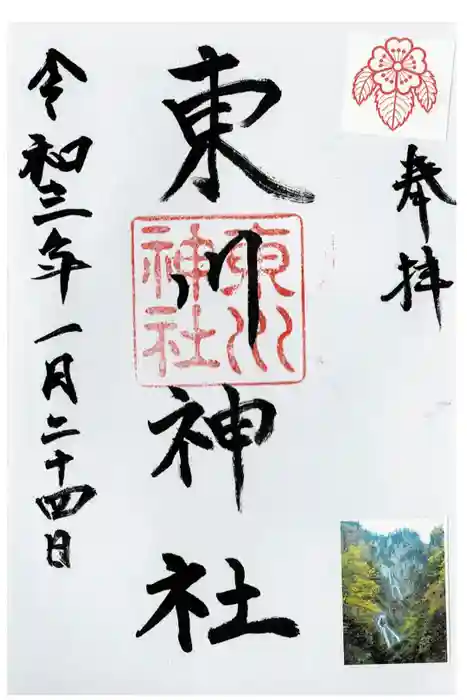 奉拝
東川神社
東川神社
令和三年一月二十四日